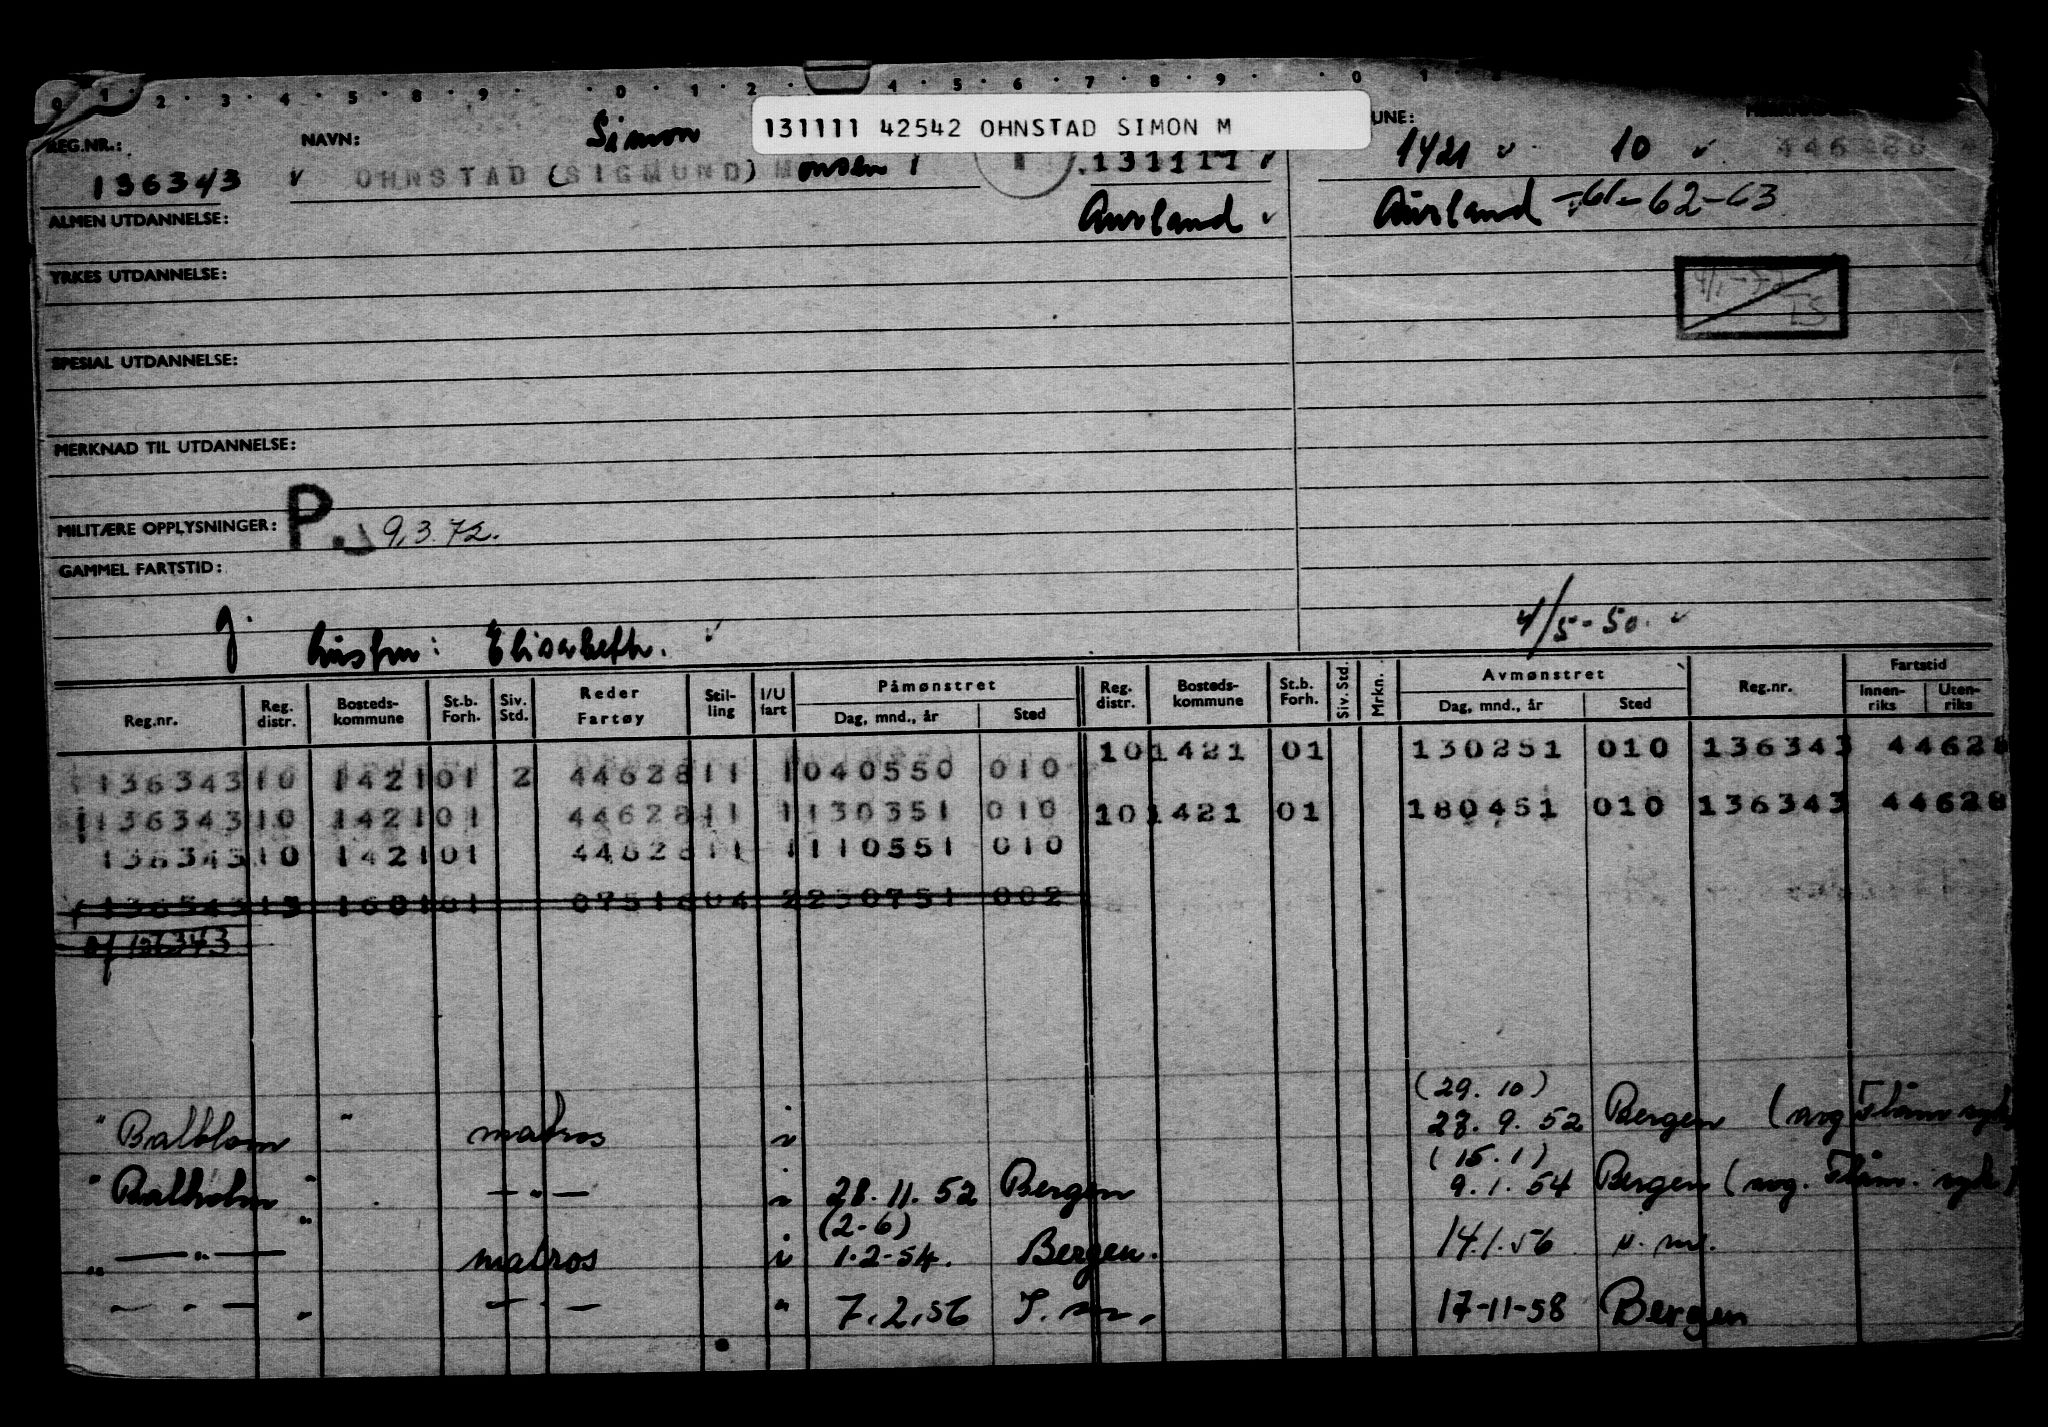 0 · 1 · 2 · 3 · 4 · 5 · 8 · 9 · · 0 · 1 · 2 · 4 · 5 · 6 · 7 · 8 · 9 · · 0 1
131111 42542 OHNSTAD SIMON M
REG.NR.: NAVN: Simon UNE:
136343 OHNSTAD (SIGMUND) M onsen 131111 1421 10
Aurland Aurland -61-62-63
ALMEN UTDANNELSE:
YRKES UTDANNELSE:
SPESIAL UTDANNELSE:
MERKNAD TIL UTDANNELSE:
MILITÆRE OPPLYSNINGER: P. 9.3.72.
GAMMEL FARTSTID:
g. hustru: Elisabeth. 4/5-50.
Reg.nr. Reg. distr. Bosteds-kommune St.b. Forh. Siv. Std. Reder Fartøy Stil-ling I/U fart Påmønstret Dag, mnd., år Sted Reg. distr. Bosteds-kommune St.b. Forh. Siv. Std. Mrkn. Avmønstret Dag, mnd., år Sted Reg.nr. Fartstid Innen-riks Uten-riks
136343 10 1421 01 2 44628 11 1 040550 010 10 1421 01 130251 010 136343 44628
136343 10 1421 01 44628 11 1 130351 010 10 1421 01 180451 010 136343 44628
136343 10 1421 01 44628 11 1 110551 010
136343 13 1601 01 07518 04 2 250751 002
(29. 10)
" " matros i 27. 9. 52 Bergen (avg Flåm
(15. 1)
" Balholm " — " — i 28. 11. 52 Bergen 9. 1. 54 Bergen (avg. Flåm.
(2-6)
" — " — " matros i 1.2-54. Bergen. 14.1.56
— " — " — " — " 7.2.56 17-11-58 Bergen